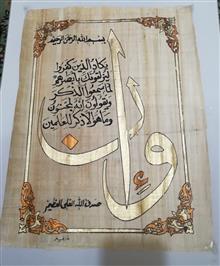 بسم الله الرحمن الرحيم
وإن
يكاد الذين كفروا
ليزلقونك بأبصارهم
لما سمعوا الذكر
ويقولون إنه لمجنون
وما هو إلا ذكر للعالمين
صدق الله العلي العظيم